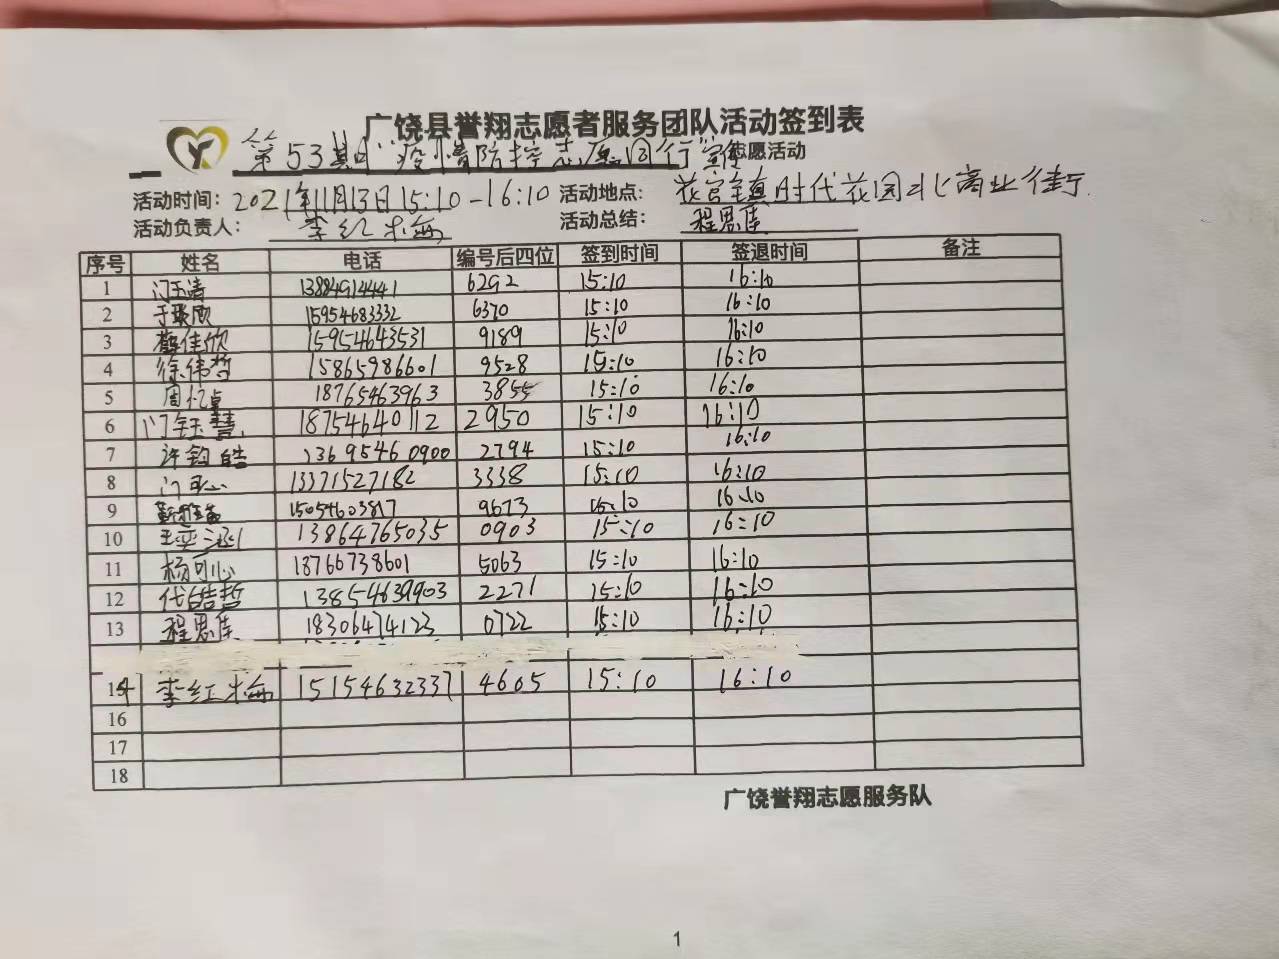 广饶县誉翔志愿者服务团队活动签到表
第53期"疫情防控志愿同行"宣传志愿活动
活动时间：2021年11月13日15:10-16:10 活动地点：花官镇时代花园北商业街
活动负责人：李红梅 活动总结：程思佳
序号 姓名 电话 编号后四位 签到时间 签退时间 备注
1 门玉清 13884914441 6292 15:10 16:10
2 15954683332 6370 15:10 16:10
3 佳欣 15954643531 9189 15:10 16:10
4 徐伟哲 15865986601 9528 15:10 16:10
5 周忆卓 18765463963 3855 15:10 16:10
6 门钰慧 18754640112 2950 15:10 16:10
7 许钧皓 13695460900 2794 15:10 16:10
8 门可心 13371527182 3338 15:10 16:10
9 15054603817 9673 15:10 16:10
10 王奕涵 13864765035 0903 15:10 16:10
11 杨可心 18766738601 5063 15:10 16:10
12 代皓哲 13854639903 2271 15:10 16:10
13 程思佳 18306474123 0722 15:10 16:10
14 李红梅 15154632337 4605 15:10 16:10
16
17
18
广饶誉翔志愿服务队
1